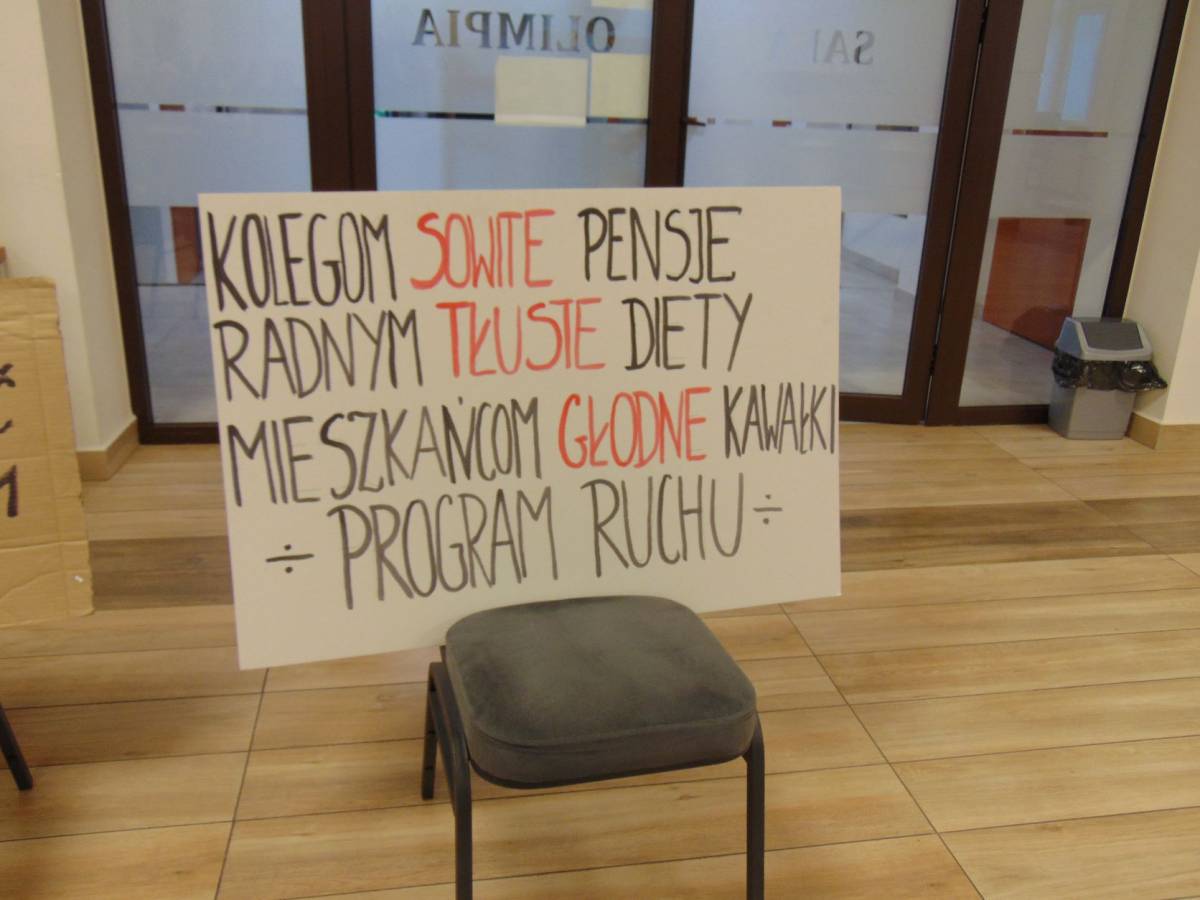 OLIMPIA
SALA
KOLEGOM SOWITE PENSJE
RADNYM TŁUSTE DIETY
MIESZKAŃCOM GŁODNE KAWAŁKI
÷ PROGRAM RUCHU ÷